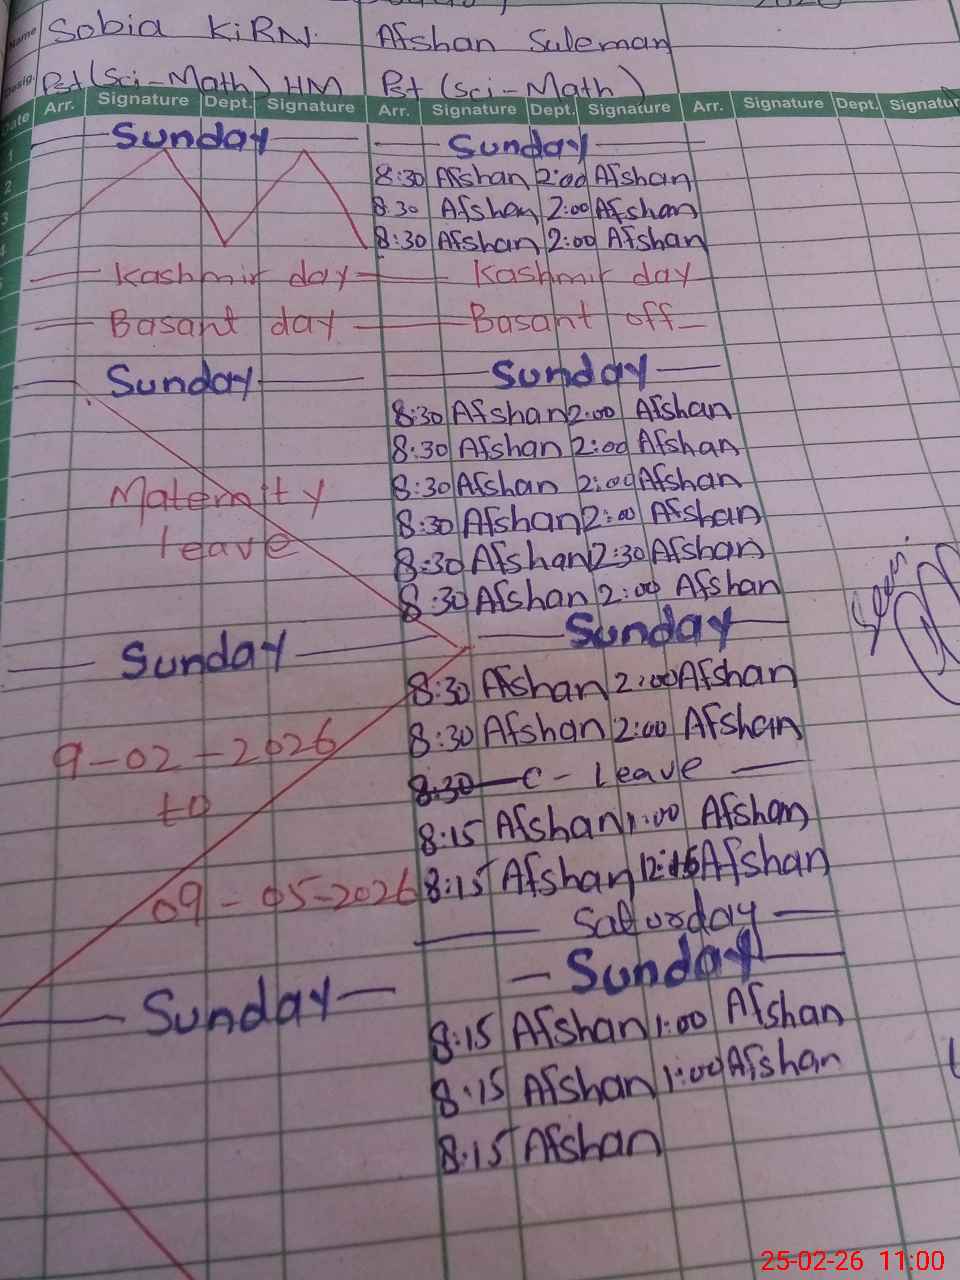 Name Sobia KiRN. Afshan Suleman
Desig. Pst (Sci-Math) HM Pst (Sci-Math)
Date Arr. Signature Dept. Signature Arr. Signature Dept. Signature Arr. Signature Dept. Signatur
1 Sunday Sunday
2 8:30 Afshan 2:00 Afshan
3 8:30 Afshan 2:00 Afshan
4 8:30 Afshan 2:00 Afshan
Kashmir day Kashmir day
Basant day Basant off
Sunday Sunday
8:30 Afshan 2:00 Afshan
8:30 Afshan 2:00 Afshan
Maternity 8:30 Afshan 2:00 Afshan
8:30 Afshan 2:00 Afshan
leave 8:30 Afshan 12:30 Afshan
8:30 Afshan 2:00 Afshan
Sunday Sunday
8:30 Afshan 2:00 Afshan
9-02-2026 8:30 Afshan 2:00 Afshan
8:30 C- Leave
to 8:15 Afshan 1:00 Afshan
09-05-2026 8:15 Afshan Afshan
Saturday
Sunday Sunday
8:15 Afshan 1:00 Afshan
8:15 Afshan 1:00 Afshan
8:15 Afshan
25-02-26 11:00